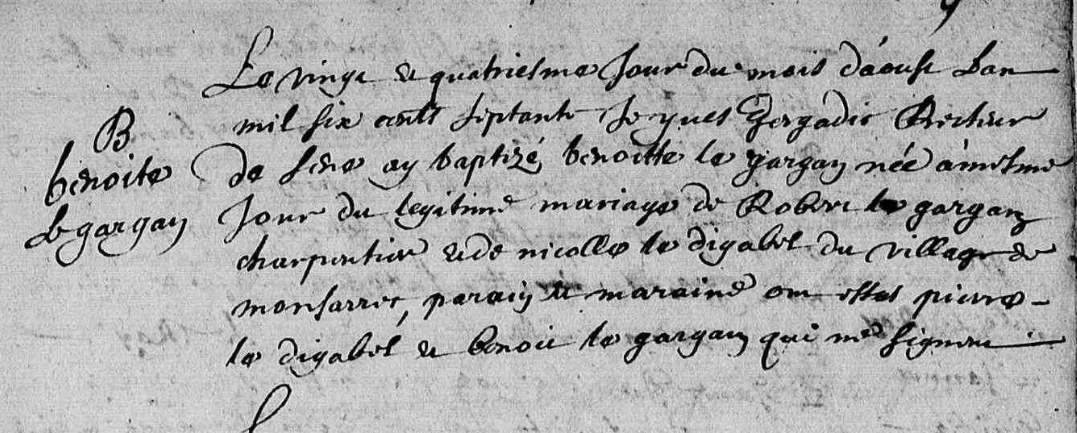 Le vingt et quatriesme Jour du mois d'aoust Lan
mil six cents septante Je yues Rectteur
B
benoite
Le gargan
De sene ay baptizé benoitte le gargan née a mesme
Jour du legitime mariage de Robert le gargan
charpentier et de nicolle le digabel du village de
monsarrec, parain et maraine ont estes pierre
le digabel et benoit le gargan qui ne signent